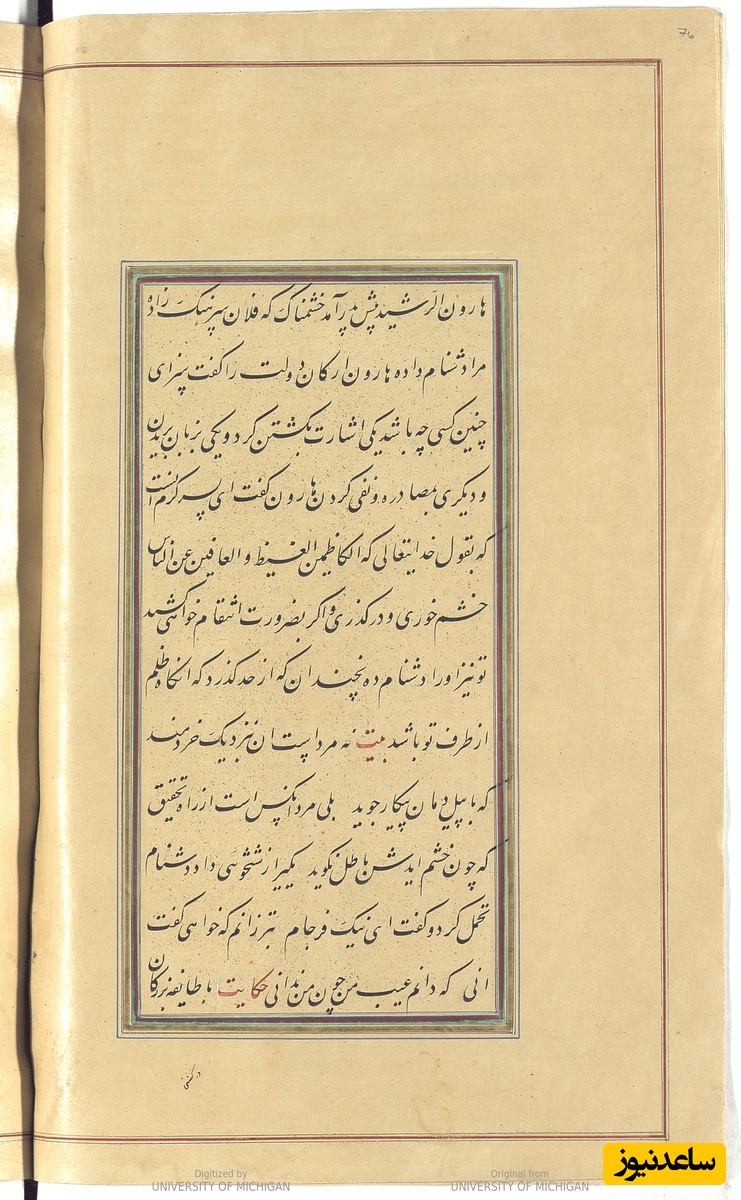 76
هارون الرشید پیش پدر آمد خشمناک که فلان سرهنگ زاده
مرا دشنام داده هارون ارکان دولت را کفت سزای
چنین کسی چه باشد یکی اشارت بکشتن کرد و یکی بزبان بریدن
و دیکری بمصادره و نفی کردن هارون کفت ای پسر کرم انست
که بقول خدایتعالی که الکاظمین الغیظ و العافین عن الناس
خشم خوری و درکذری و اکر بضرورت انتقام خواهی کشید
تو نیز او را دشنام ده نچندان که از حد کذرد که انکاه ظلم
از طرف تو باشد بیت نه مردست ان نزدیک خردمند
که با پیل دمان پیکار جوید بلی مرد انکس است از راه تحقیق
که چون خشم ایدش باطل نکوید یکیرا زشتخوئی داد دشنام
تحمل کرد و کفت ای نیک فرجام بتر زانم که خواهی کفت
انی که دانم عیب من چون من ندانی حکایت با طایفه بزرکان
درکشتی
Digitized by
UNIVERSITY OF MICHIGAN
Original from
UNIVERSITY OF MICHIGAN
ساعدنیوز